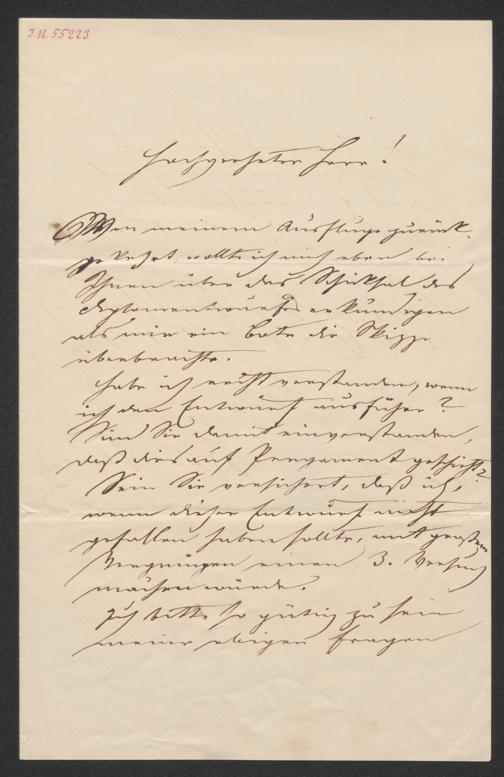 J.N. 55223
Hochverehrter Herr!
Von meinem Ausfluge zurück-
gekehrt, wollte ich mich eben bei
Ihnen über das Schicksal des
Diplomentwurfes erkundigen
als mir ein Bote die Skizze
überbrachte.
Habe ich recht verstanden, wenn
ich den Entwurf ausführe?
Sind Sie damit einverstanden,
daß dies auf Pergament geschieht?
Sein Sie versichert, daß ich,
wenn dieser Entwurf nicht
gefallen haben sollte, mit großem
Vergnügen einen 3. Versuch
machen würde.
Ich bitte so gütig zu sein
meine obigen Fragen